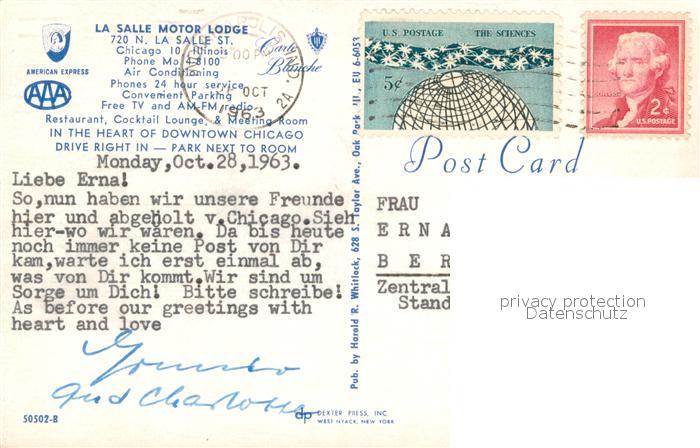 LA SALLE MOTOR LODGE
720 N. LA SALLE ST.
Chicago 10, Illinois
Phone Mo 4-8100
Air Conditioning
Phones 24 hour service
Convenient Parking
Free TV and AM-FM radio
Restaurant, Cocktail Lounge, & Meeting Room
IN THE HEART OF DOWNTOWN CHICAGO
DRIVE RIGHT IN — PARK NEXT TO ROOM
AMERICAN EXPRESS
AAA
Carte
Blanche
OCT
1963
2A
U.S. POSTAGE THE SCIENCES
5¢
2¢
U.S. POSTAGE
Post Card
Monday,Oct.28,1963.
Liebe Erna!
So,nun haben wir unsere Freunde
hier und abgeholt v.Chicago.Sieh
hier-wo wir wären. Da bis heute
noch immer keine Post von Dir
kam,warte ich erst einmal ab,
was von Dir kommt.Wir sind um
Sorge um Dich! Bitte schreibe!
As before our greetings with
heart and love
und Charlotte
50502-B
dp DEXTER PRESS, INC.
WEST NYACK, NEW YORK
Pub. by Harold R. Whitlock, 628 S. Taylor Ave., Oak Park, Ill., EU 6-6053
FRAU
E R N A
B E R
Zentral
Stand
privacy protection
Datenschutz